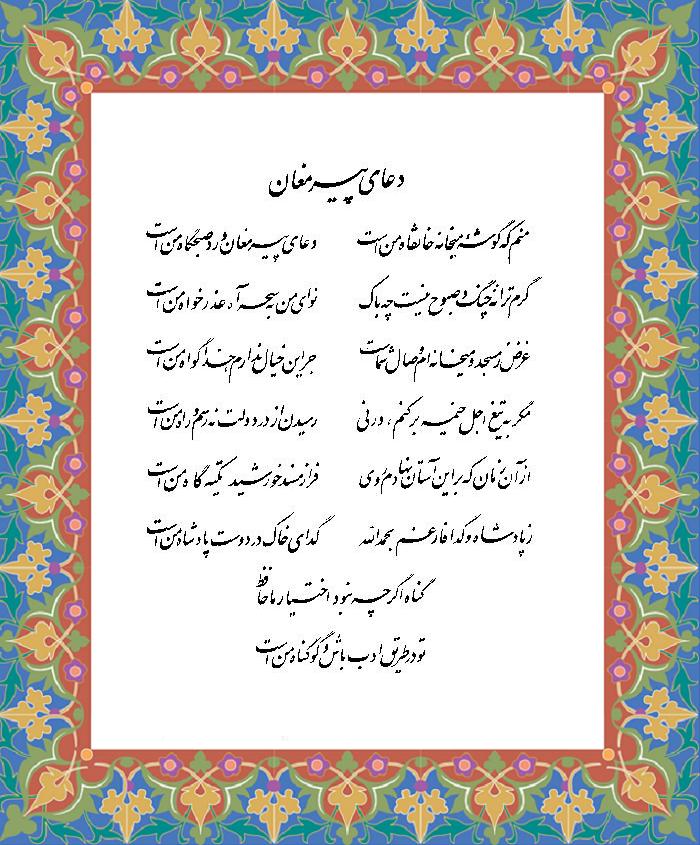 دعای پیر مغان
منم که گوشه میخانه خانقاه من است دعای پیر مغان ورد صبحگاه من است
گرم ترانه چنگ و صبوح نیست چه باک نوای من به سحر آه عذر خواه من است
غرض ز مسجد و میخانه ام وصال شماست جز این خیال ندارم خدا گواه من است
مگر به تیغ اجل خیمه برکنم، ورنی رمیدن از در دولت نه رسم و راه من است
از آن زمان که بر این آستان نهادم روی فراز مسند خورشید تکیه گاه من است
ز پادشاه و گدا فارغم بحمدالله گدای خاک در دوست پادشاه من است
گناه اگر چه نبود اختیار ما حافظ
تو در طریق ادب باش و گو گناه من است